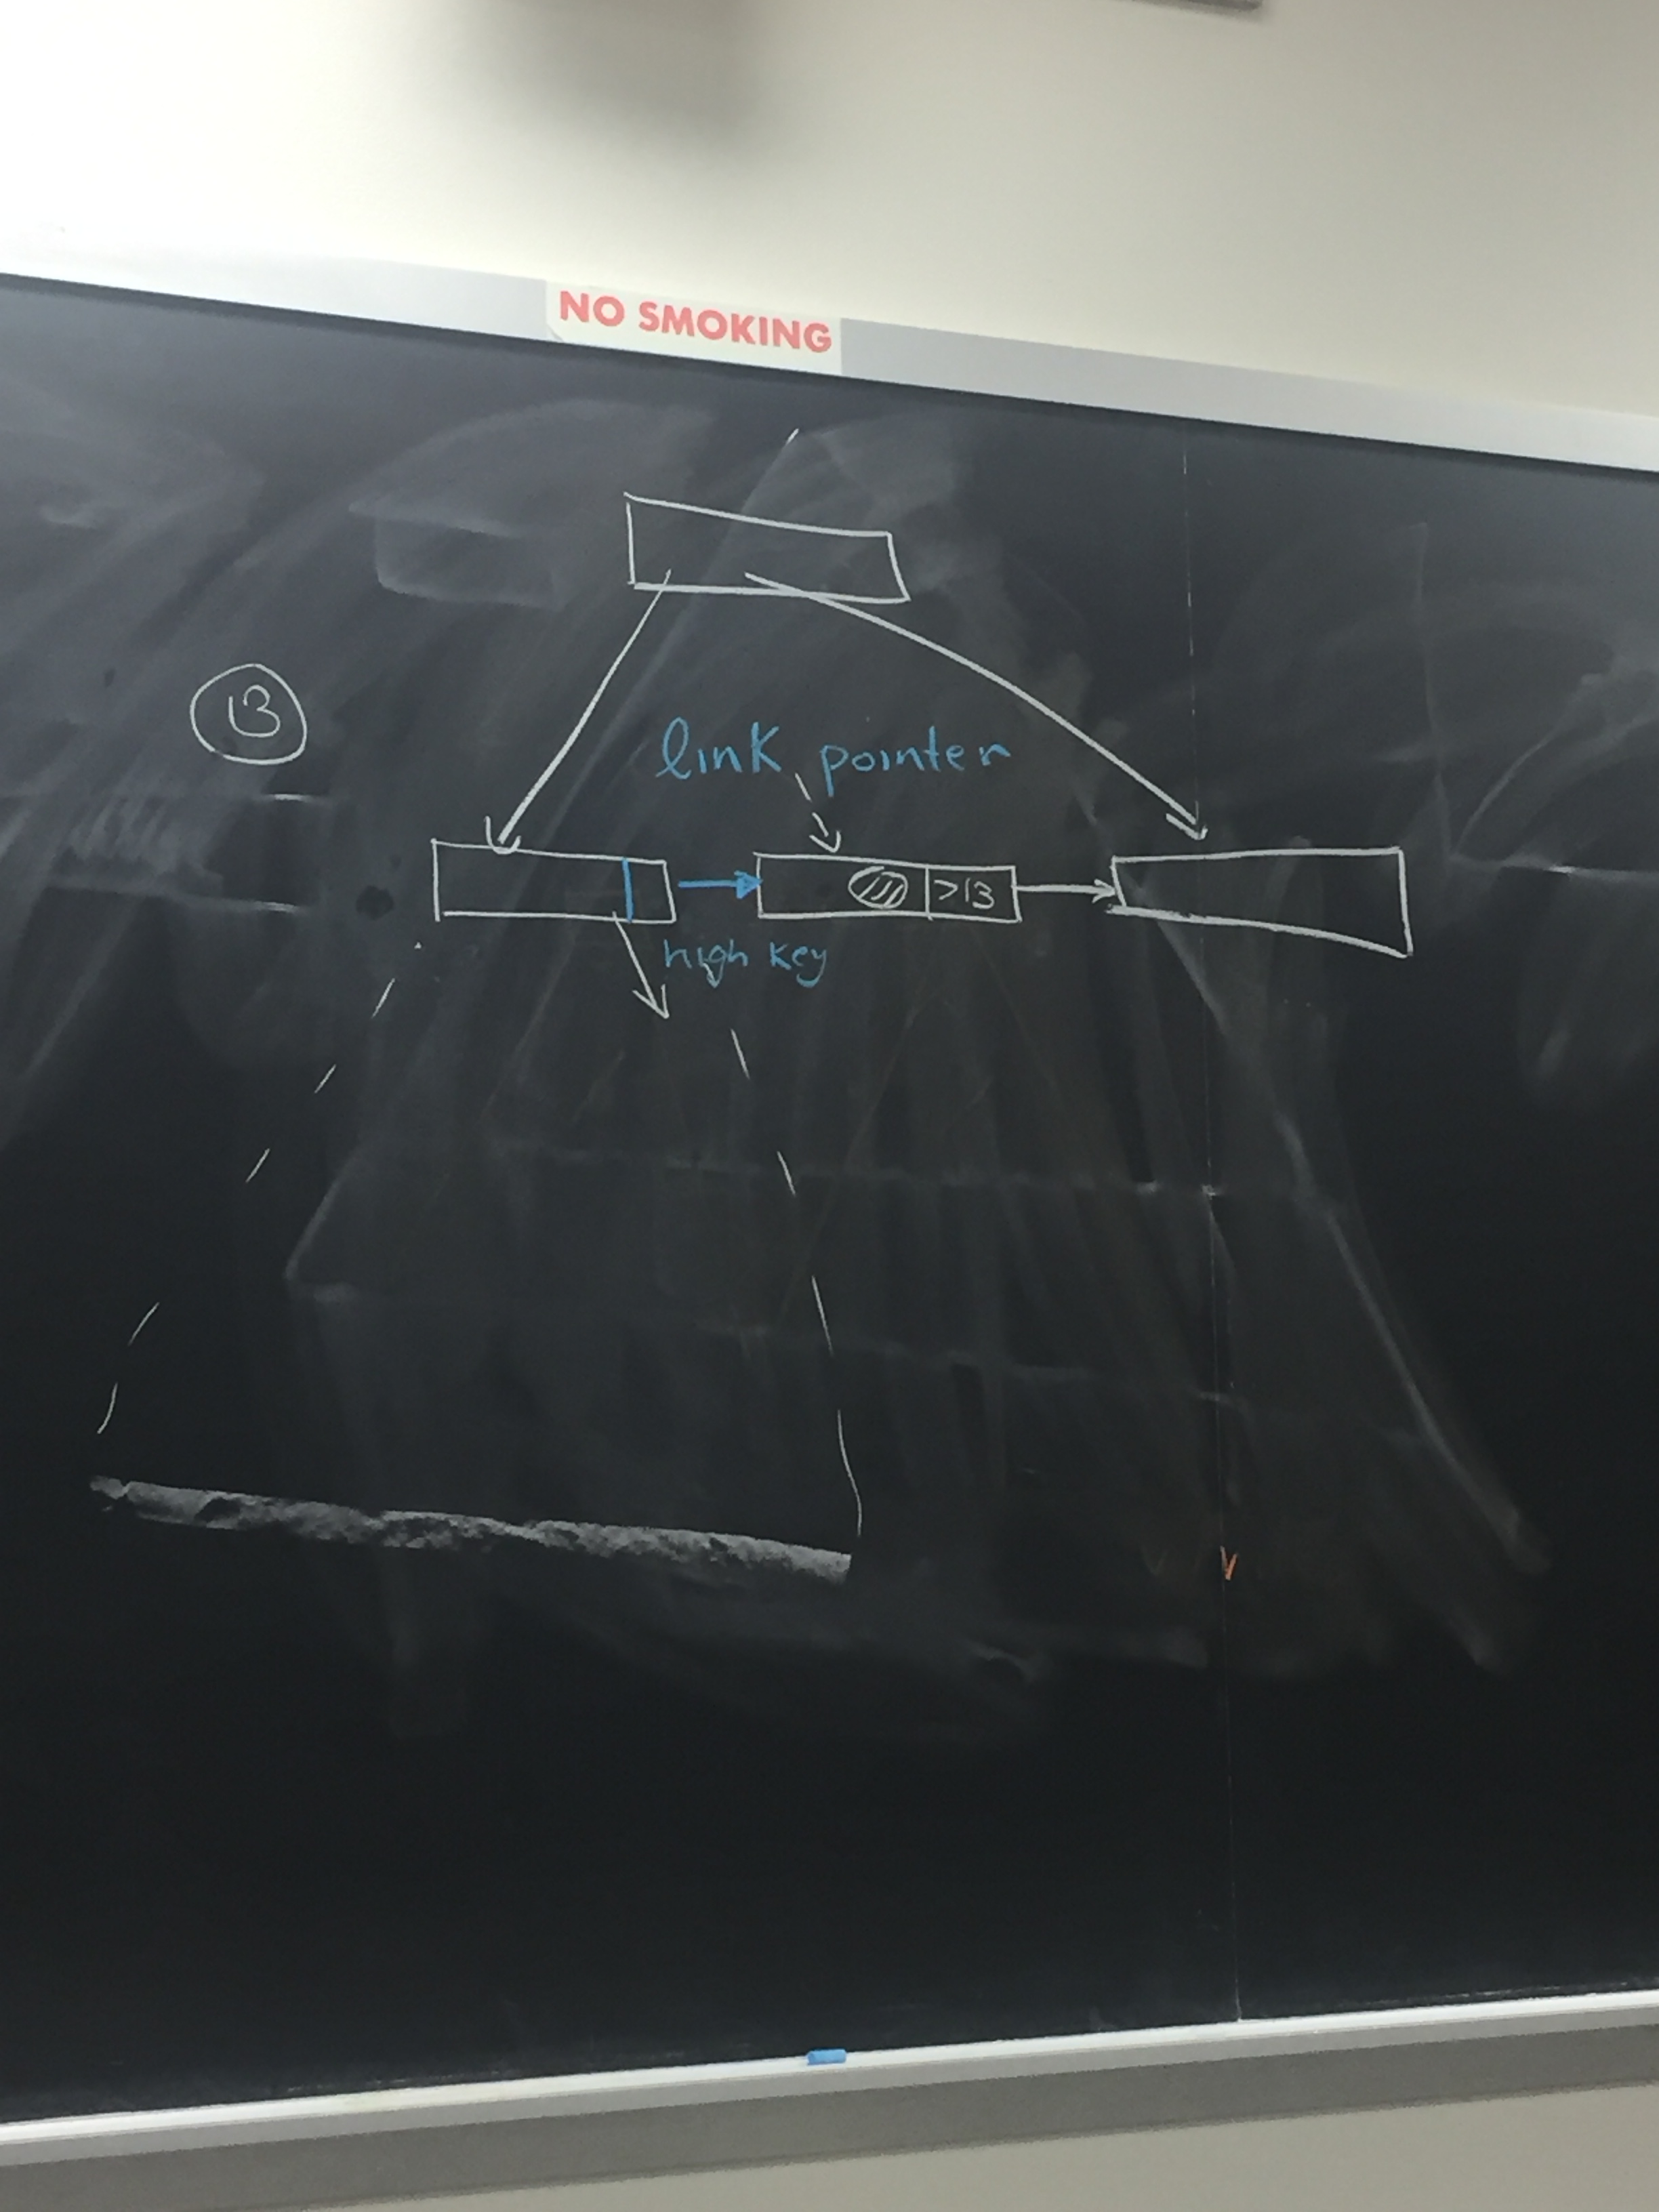 NO SMOKING
13
link pointer
>13
high key